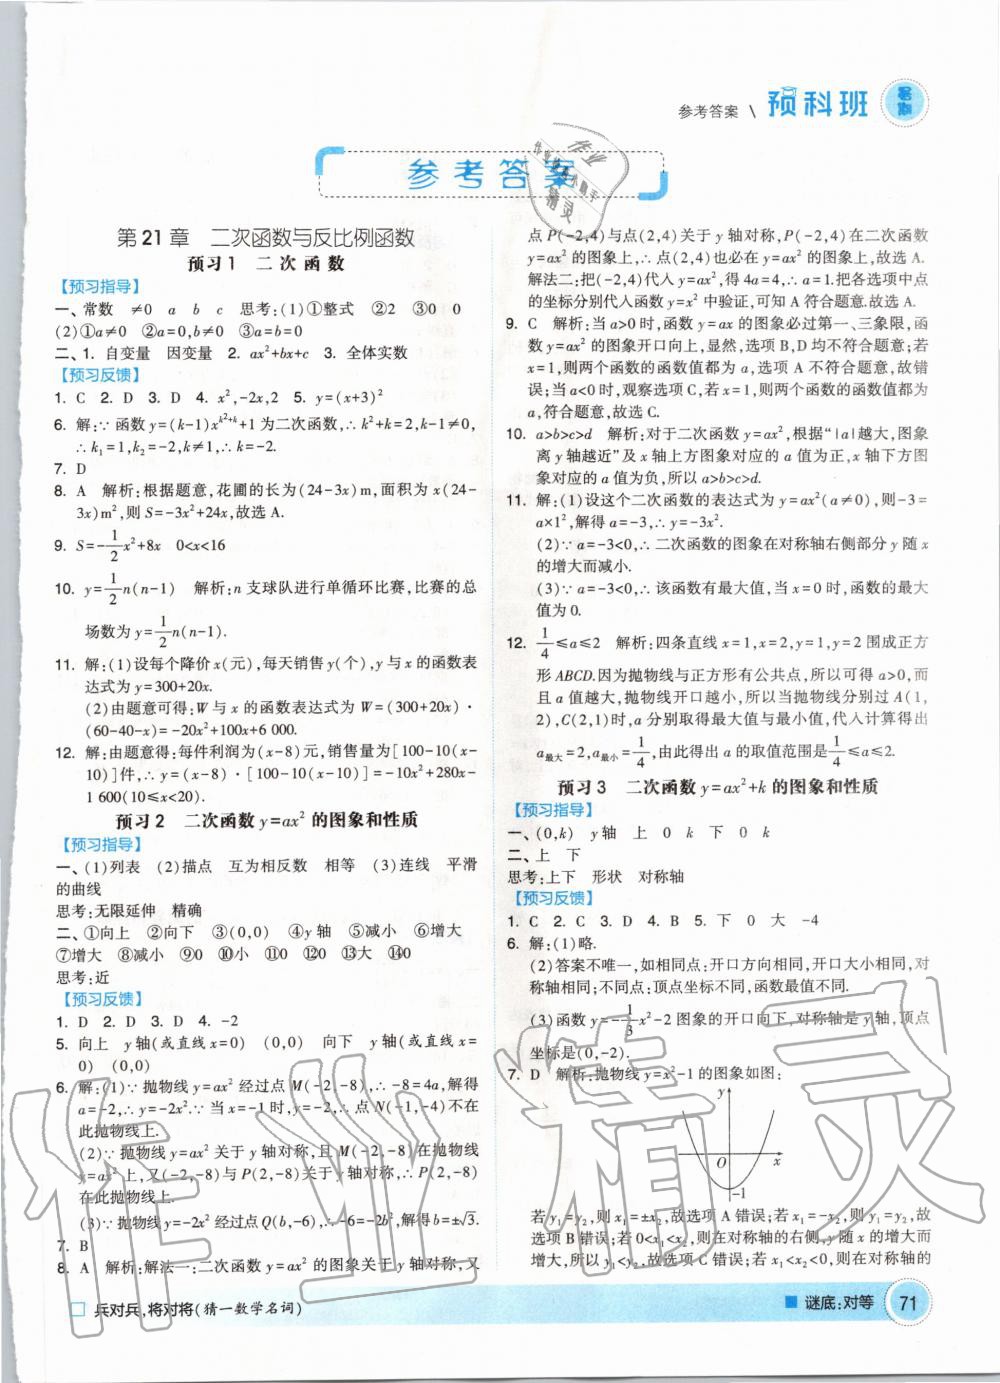 参考答案 \ 预科班 暑期
参考答案
第 21 章 二次函数与反比例函数
预习 1 二 次 函 数
【预习指导】
一、常数 ≠0 a b c 思考:(1)①整式 ②2 ③0 0
(2)①a≠0 ②a=0,b≠0 ③a=b=0
二、1. 自变量 因变量 2. ax²+bx+c 3. 全体实数
【预习反馈】
1. C 2. D 3. D 4. x²,-2x,2 5. y=(x+3)²
6. 解:∵ 函数 y=(k-1)x^{k²+k}+1 为二次函数,∴ k²+k=2,k-1≠0,
∴ k₁=1,k₂=-2,k≠1,∴ k=-2.
7. D
8. A 解析:根据题意,花圃的长为(24-3x)m,面积为 x(24-
3x)m²,则 S=-3x²+24x,故选 A.
9. S=-1/2x²+8x 0<x<16
10. y=1/2n(n-1) 解析:n 支球队进行单循环比赛,比赛的总
场数为 y=1/2n(n-1).
11. 解:(1)设每个降价 x(元),每天销售 y(个),y 与 x 的函数表
达式为 y=300+20x.
(2)由题意可得:W 与 x 的函数表达式为 W=(300+20x)·
(60-40-x)=-20x²+100x+6 000.
12. 解:由题意得:每件利润为(x-8)元,销售量为[100-10(x-
10)]件,∴ y=(x-8)·[100-10(x-10)]=-10x²+280x-
1 600(10≤x<20).
预习 2 二次函数 y=ax² 的图象和性质
【预习指导】
一、(1)列表 (2)描点 互为相反数 相等 (3)连线 平滑
的曲线
思考:无限延伸 精确
二、①向上 ②向下 ③(0,0) ④y 轴 ⑤减小 ⑥增大
⑦增大 ⑧减小 ⑨0 ⑩小 ⑪0 ⑫0 ⑬大 ⑭0
思考:近
【预习反馈】
1. D 2. D 3. D 4. -2
5. 向上 y 轴(或直线 x=0) (0,0) 向下 y 轴(或直线 x=
0) (0,0)
6. 解:(1)∵ 抛物线 y=ax² 经过点 M(-2,-8),∴ -8=4a,解得
a=-2,∴ y=-2x².∵ 当 x=-1 时,y=-2,∴ 点 N(-1,-4)不在
此抛物线上.
(2)∵ 抛物线 y=ax² 关于 y 轴对称,且 M(-2,-8)在抛物线
y=ax² 上,又(-2,-8)与 P(2,-8)关于 y 轴对称,∴ P(2,-8)
在此抛物线上.
(3)∵ 抛物线 y=-2x² 经过点 Q(b,-6),∴ -6=-2b²,解得 b=±√3.
7. B
8. A 解析:解法一:二次函数 y=ax² 的图象关于 y 轴对称,又
点 P(-2,4)与点(2,4)关于 y 轴对称,点 P(-2,4)在二次函数
y=ax² 的图象上,∴ 点(2,4)也必在 y=ax² 的图象上,故选 A.
解法二:把(-2,4)代入 y=ax²,得 4a=4,∴ a=1.把选项中点
的坐标分别代入函数 y=x² 中验证,可知 A 符合题意.故选 A.
9. C 解析:当 a>0 时,函数 y=ax 的图象必过第一、三象限,函
数 y=ax² 的图象开口向上,显然,选项 B,D 均不符合题意;若
x=1,则两个函数的函数值都为 a,选项 A 不符合题意.故错
误;当 a<0 时,观察选项 C,若 x=1,两个函数的函数值都为
a,符合题意,故选 C.
10. a>b>c>d 解析:对于二次函数 y=ax²,根据“|a|越大,图象
离 y 轴越近”及 x 轴上方图象对应的 a 值为正,x 轴下方图
象对应的 a 值为负,所以 a>b>c>d.
11. 解:(1)设这个二次函数的表达式为 y=ax²(a≠0),则-3=
a×1²,解得 a=-3,∴ y=-3x².
(2)∵ a=-3<0,∴ 二次函数的图象在对称轴右侧部分 y 随 x
的增大而减小.
(3)∵ a=-3<0,∴ 该函数有最大值,当 x=0 时,函数的最大
值为 0.
12. 1/4≤a≤2 解析:四条直线 x=1,x=2,y=1,y=2 围成正方
形 ABCD.因为抛物线与正方形有公共点,所以可得 a>0,而
且 a 值越大,抛物线开口越小,所以当抛物线分别过 A(1,
2),C(2,1)时,a 分别取得最大值与最小值,代入计算得出
a最大=2,a最小=1/4,由此得出 a 的取值范围是1/4≤a≤2.
预习 3 二次函数 y=ax²+k 的图象和性质
【预习指导】
一、(0,k) y 轴 上 0 k 下 0 k
二、上 下
思考:上下 形状 对称轴
【预习反馈】
1. C 2. C 3. D 4. B 5. 下 0 大 -4
6. 解:(1)略.
(2)答案不唯一,如相同点:开口方向相同,开口大小相同,对
称轴相同;不同点:顶点坐标不同,函数最值不同.
(3)函数 y=-1/3x²-2 图象的开口向下,对称轴为 y 轴,顶点
坐标是(0,-2).
7. D 解析:抛物线 y=x²-1 的图象如图:
y
O x
-1
若 y₁=y₂,则 x₁=±x₂,故选项 A 错误;若 x₁=-x₂,则 y₁=y₂,故
选项 B 错误;若 0<x₁<x₂,则在对称轴的右侧,y 随 x 的增大而
增大,所以 y₁<y₂,故选项 C 错误;若 x₁<x₂<0,则在对称轴的
兵对兵,将对将(猜一数学名词)
谜底:对等 71
作业精灵